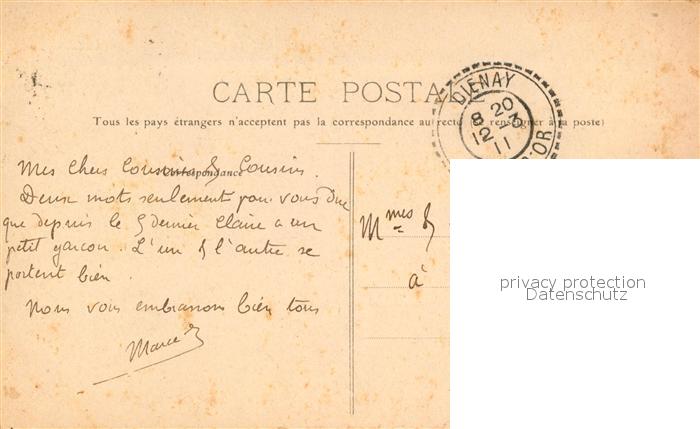 CARTE POSTALE
Tous les pays étrangers n'acceptent pas la correspondance au recto (se renseigner à la poste)
DIENAY
8 20
12 3
11
D'OR
Correspondance
Mes chers Cousins & Cousins.
Deux mots seulement pour vous dire
que depuis le 5 dernier Claire a un
petit garçon. L'un & l'autre se
portent bien.
Nous vous embrassons bien tous
Marcel
Mmes &
à
privacy protection
Datenschutz